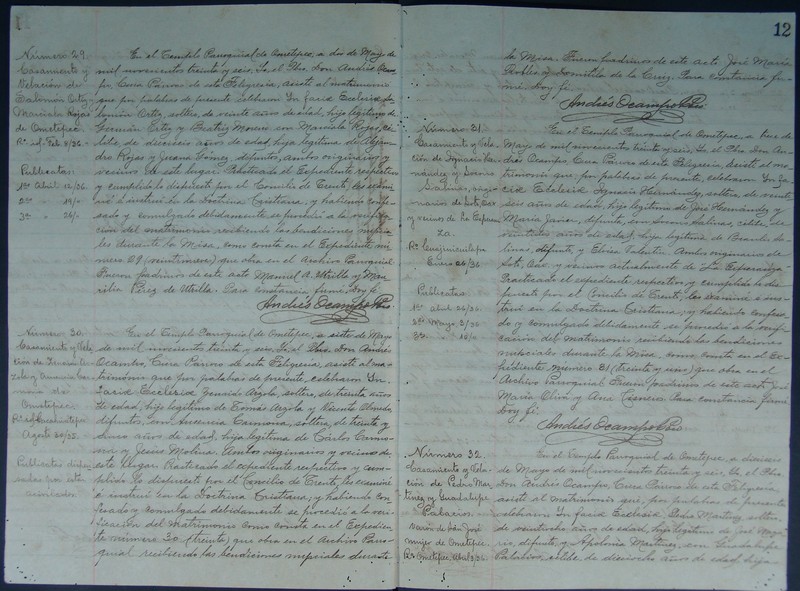 Número 29.
Casamiento y
Velación de
Salomón Ortiz y
Mariala Rojas
de Ometepec.
Publicatas
1ra Abril 12/36.
2da " 19/"
3a " 26/"
En el Templo Parroquial de Ometepec, a dos de Mayo de
mil novecientos treinta y seis, Yo, el Pbro. Don Andrés Ocam-
po, Cura Párroco de esta Feligresía, asistí al matrimonio
que por palabras de presente celebraron In facie Ecclesiæ Sa-
lomón Ortiz, soltero, de veinte años de edad, hijo legítimo de
Germán Ortiz y Beatriz Moreno con Mariala Rojas, cé-
libe de dieciseis años de edad, hija legítima de Alejan-
dro Rojas y Juana Gómez, difuntos, ambos originarios y
vecinos de este lugar. Practicado el Expediente respectivo
y cumplido lo dispuesto por el Concilio de Trento, les exami-
né e instruí en la Doctrina Cristiana, y habiendo confe-
sado y comulgado debidamente se procedió a la verifi-
cación del matrimonio recibiendo las bendiciones nupcia-
les durante la Misa, como consta en el Expediente nú-
mero 29 (veintinueve) que obra en el Archivo Parroquial.
Fueron padrinos de este acto Manuel A. Utrilla y Mar-
celia Pérez de Utrilla. Para constancia firmé. Doy fé.
Andrés Ocampo Pbro
Número 30.
Casamiento y Vela-
Ometepec.
Agosto 30/35.
Publicatas dispen-
sadas por
En el Templo Parroquial de Ometepec, a siete de Mayo
de mil novecientos treinta y seis, Yo, el Pbro. Don Andrés
Ocampo, Cura Párroco de esta Feligresía, asistí al ma-
trimonio que por palabras de presente, celebraron In
facie Ecclesiæ
de edad, hijo legítimo de Tomás
difuntos, con Ancencia Carmona, soltera, de treinta y
cinco años de edad, hija legítima de Carlos Carmo-
na y Jesús Molina. Ambos originarios y vecinos de
este lugar. Practicado el expediente respectivo y cum-
plido lo dispuesto por el Concilio de Trento, les examiné
e instruí en la Doctrina Cristiana, y habiendo con-
fesado y comulgado debidamente se procedió a la veri-
ficación del Matrimonio como consta en el Expedien-
te número 30 (treinta) que obra en el Archivo Parro-
quial recibiendo las bendiciones nupciales durante
12
la Misa. Fueron padrinos de este acto José María
Robles y Domitila de la Cruz. Para constancia fir-
mé. Doy fé.
Andrés Ocampo Pbro
Número 31.
Casamiento y Vela-
ción de Ignacio Her-
nández y
Salinas,
y vecinos de la Esperan-
za.
Enero 26/36.
Publicatas
1ra abril 26/36.
2da Mayo 3/36
3ra " 10/"
En el Templo Parroquial de Ometepec, a trece de
Mayo de mil novecientos treinta y seis, Yo el Pbro. Don An-
drés Ocampo, Cura Párroco de esta Feligresía, asistí al ma-
trimonio que, por palabras de presente, celebraron In fa-
cie Eclesiæ Ignacio Hernández, soltero, de veinti-
seis años de edad, hijo legítimo de José Hernández y
María Javier, difunta, con Salinas, célibe, de
años de edad, hija legítima de Sa-
linas, difunto, y Eloisa Valentín. Ambos originarios de
Oax. y vecinos actualmente de La Esperanza.
Practicado el expediente respectivo y cumplido lo dis-
puesto por el Concilio de Trento, les examiné e ins-
truí en la Doctrina Cristiana, y habiendo confesa-
do y comulgado debidamente se procedió a la verifi-
cación del Matrimonio recibiendo las bendiciones
nupciales durante la Misa, como consta en el Ex-
pediente número 31 (treinta y uno) que obra en el
Archivo Parroquial. Fueron padrinos de este acto José
María Oliva y Ana Cisneros. Para constancia firmé.
Doy fé.
Andrés Ocampo Pbro
Número 32
Casamiento y Vela-
ción de Pedro Mar-
tínez y Guadalupe
Palacios.
mujer de Ometepec.
Ometepec, Abril 3/36.
En el Templo Parroquial de Ometepec, a dieciseis
de Mayo de mil novecientos treinta y seis, Yo, el Pbro.
Don Andrés Ocampo, Cura Párroco de esta Feligresía,
asistí al Matrimonio que, por palabras de presente
celebraron In facie Eclesiæ, Pedro Martínez, soltero,
de veintiocho años de edad, hijo legítimo de José
difunto, y Apolonia Martínez, con Guadalupe
Palacios, célibe de dieciocho años de edad, hija